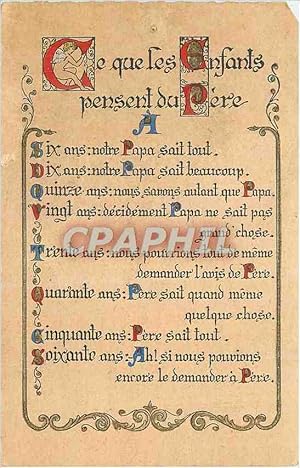 Ce que les Enfants
pensent du Père
À
Six ans: notre Papa sait tout.
Dix ans: notre Papa sait beaucoup.
Quinze ans: nous savons autant que Papa.
Vingt ans: décidément Papa ne sait pas
grand'chose.
Trente ans: nous pourrions tout de même
demander l'avis de Père.
Quarante ans: Père sait quand même
quelque chose.
Cinquante ans: Père sait tout.
Soixante ans: Ah! si nous pouvions
encore le demander à Père.
PRPARC